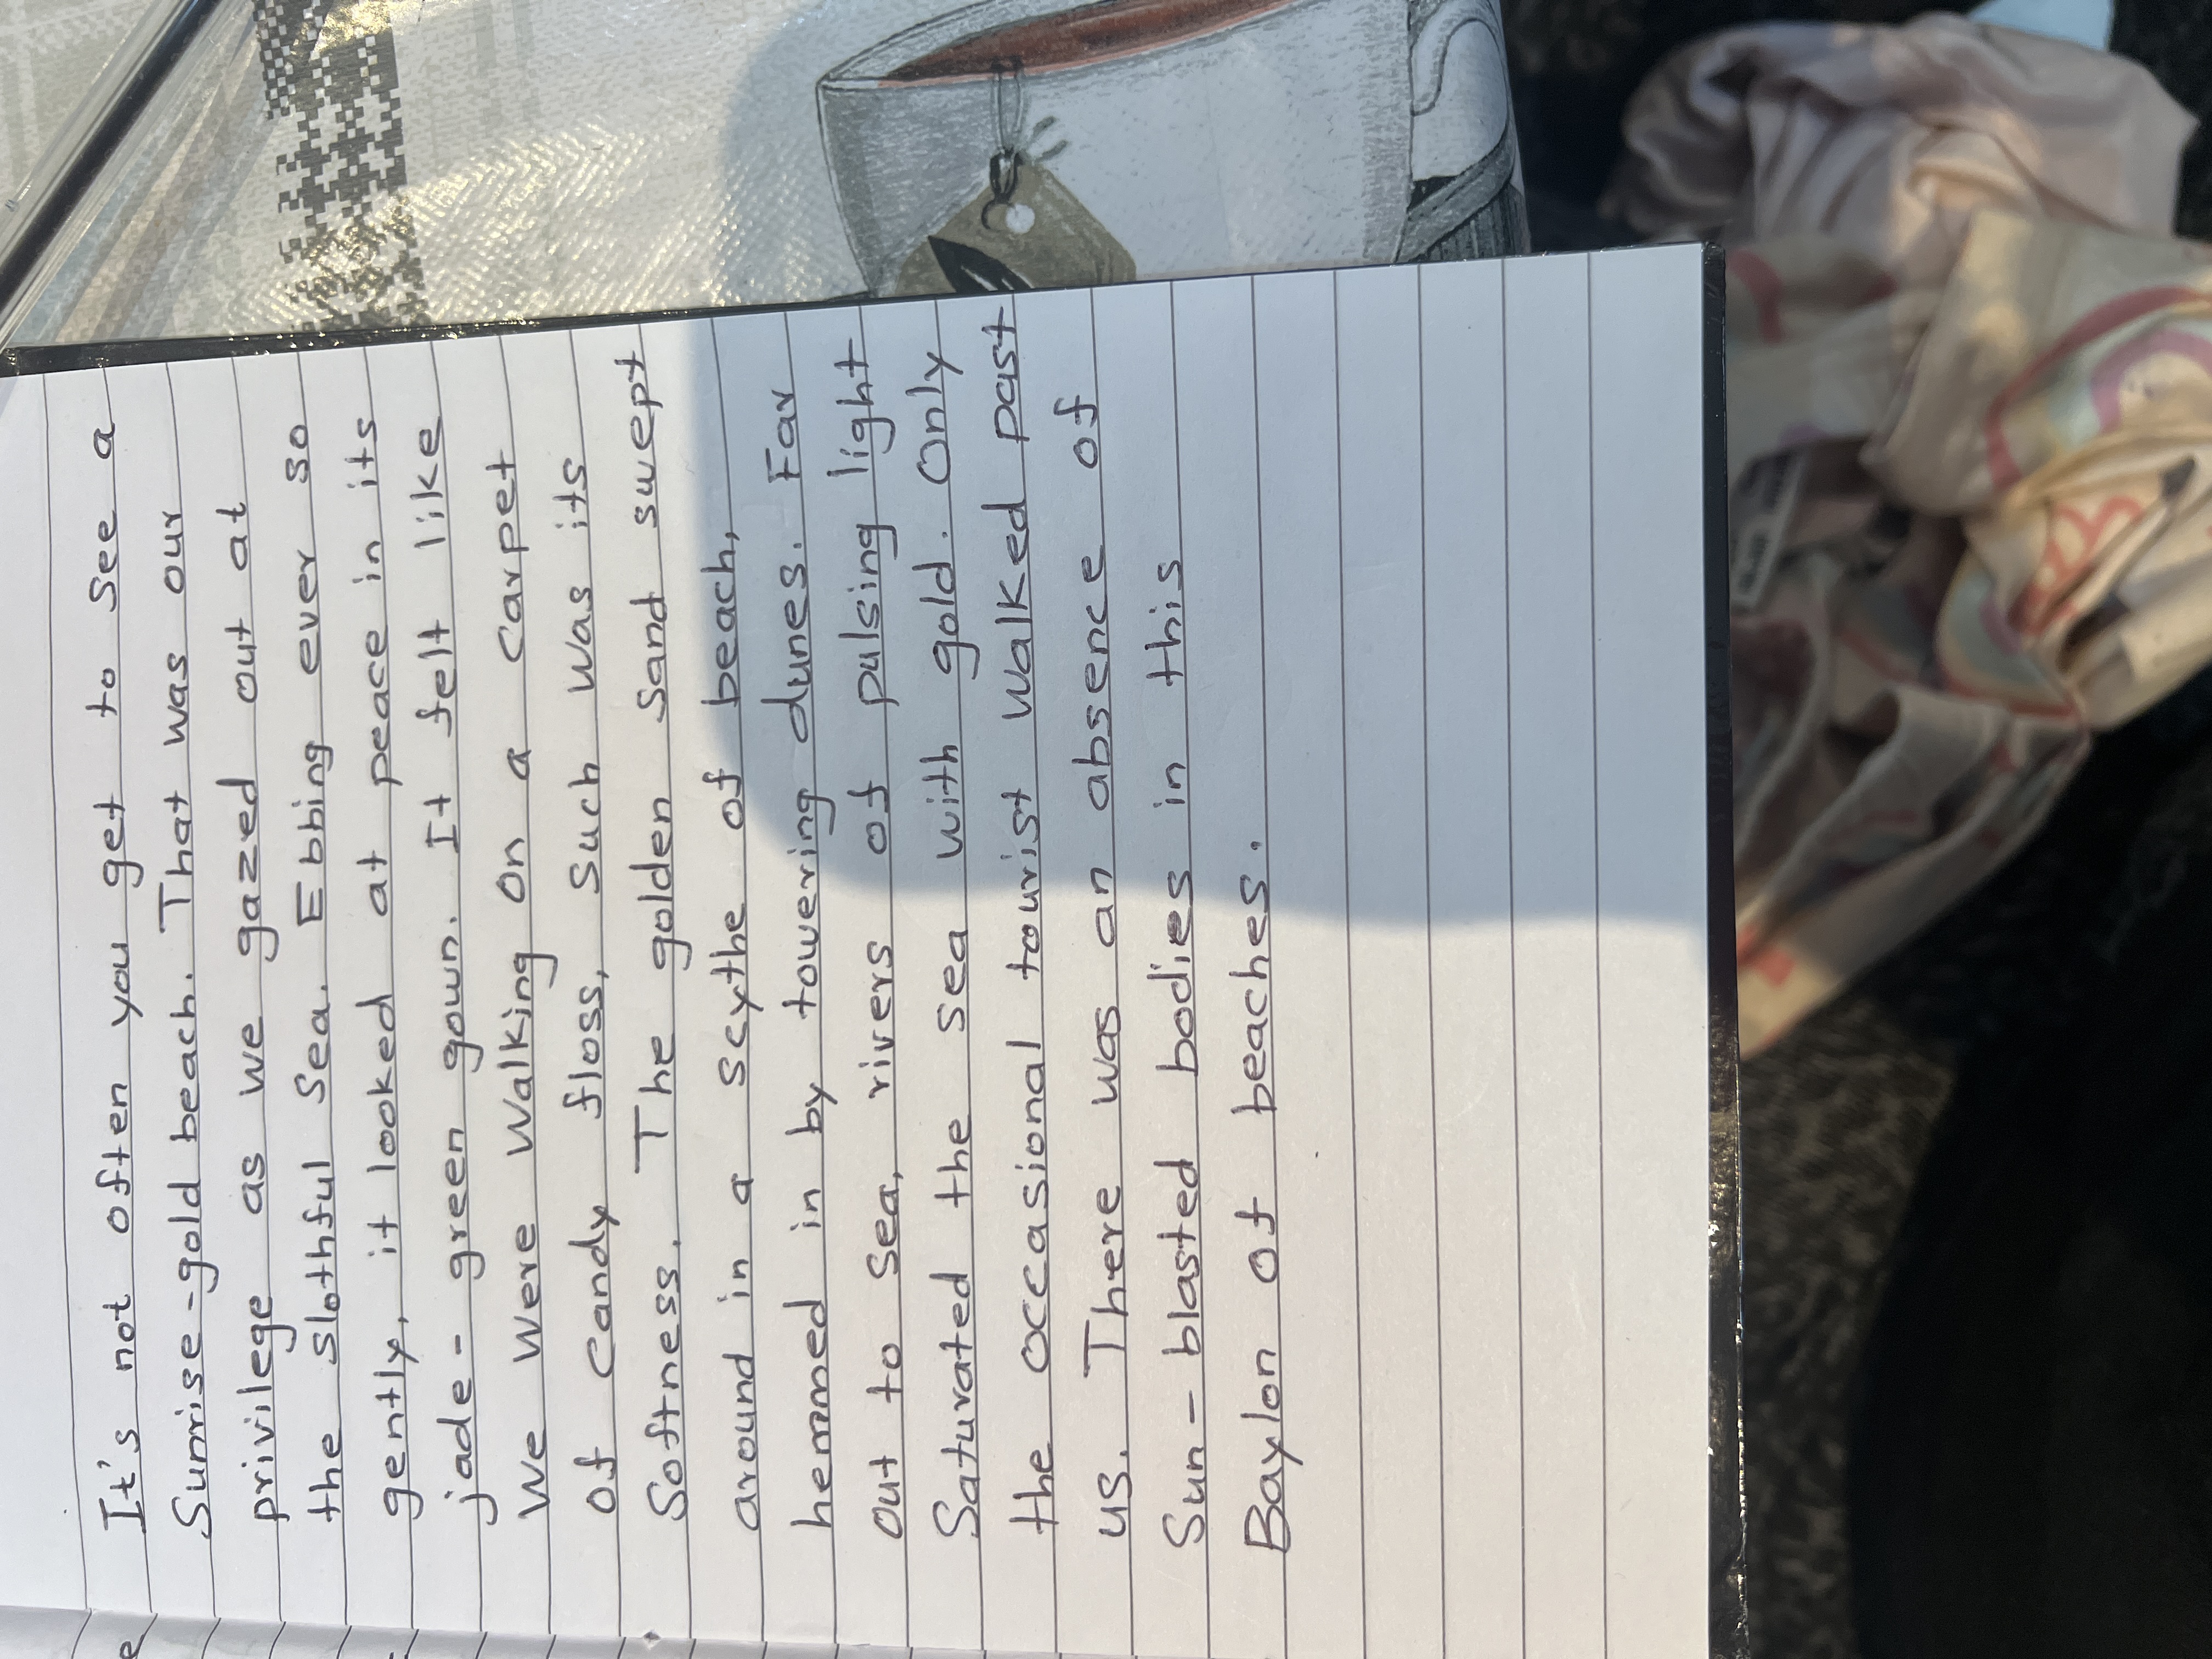 It's not often you get to see a
Sunrise-gold beach. That was our
privilege as we gazed out at
the slothful sea. Ebbing ever so
gently, it looked at peace in its
jade-green gown. It felt like
we were walking on a carpet
of candy floss, such was its
softness. The golden sand swept
around in a scythe of beach,
hemmed in by towering dunes. Far
out to sea, rivers of pulsing light
saturated the sea with gold. Only
the occasional tourist walked past
us. There was an absence of
Sun-blasted bodies in this
Baylon of beaches.